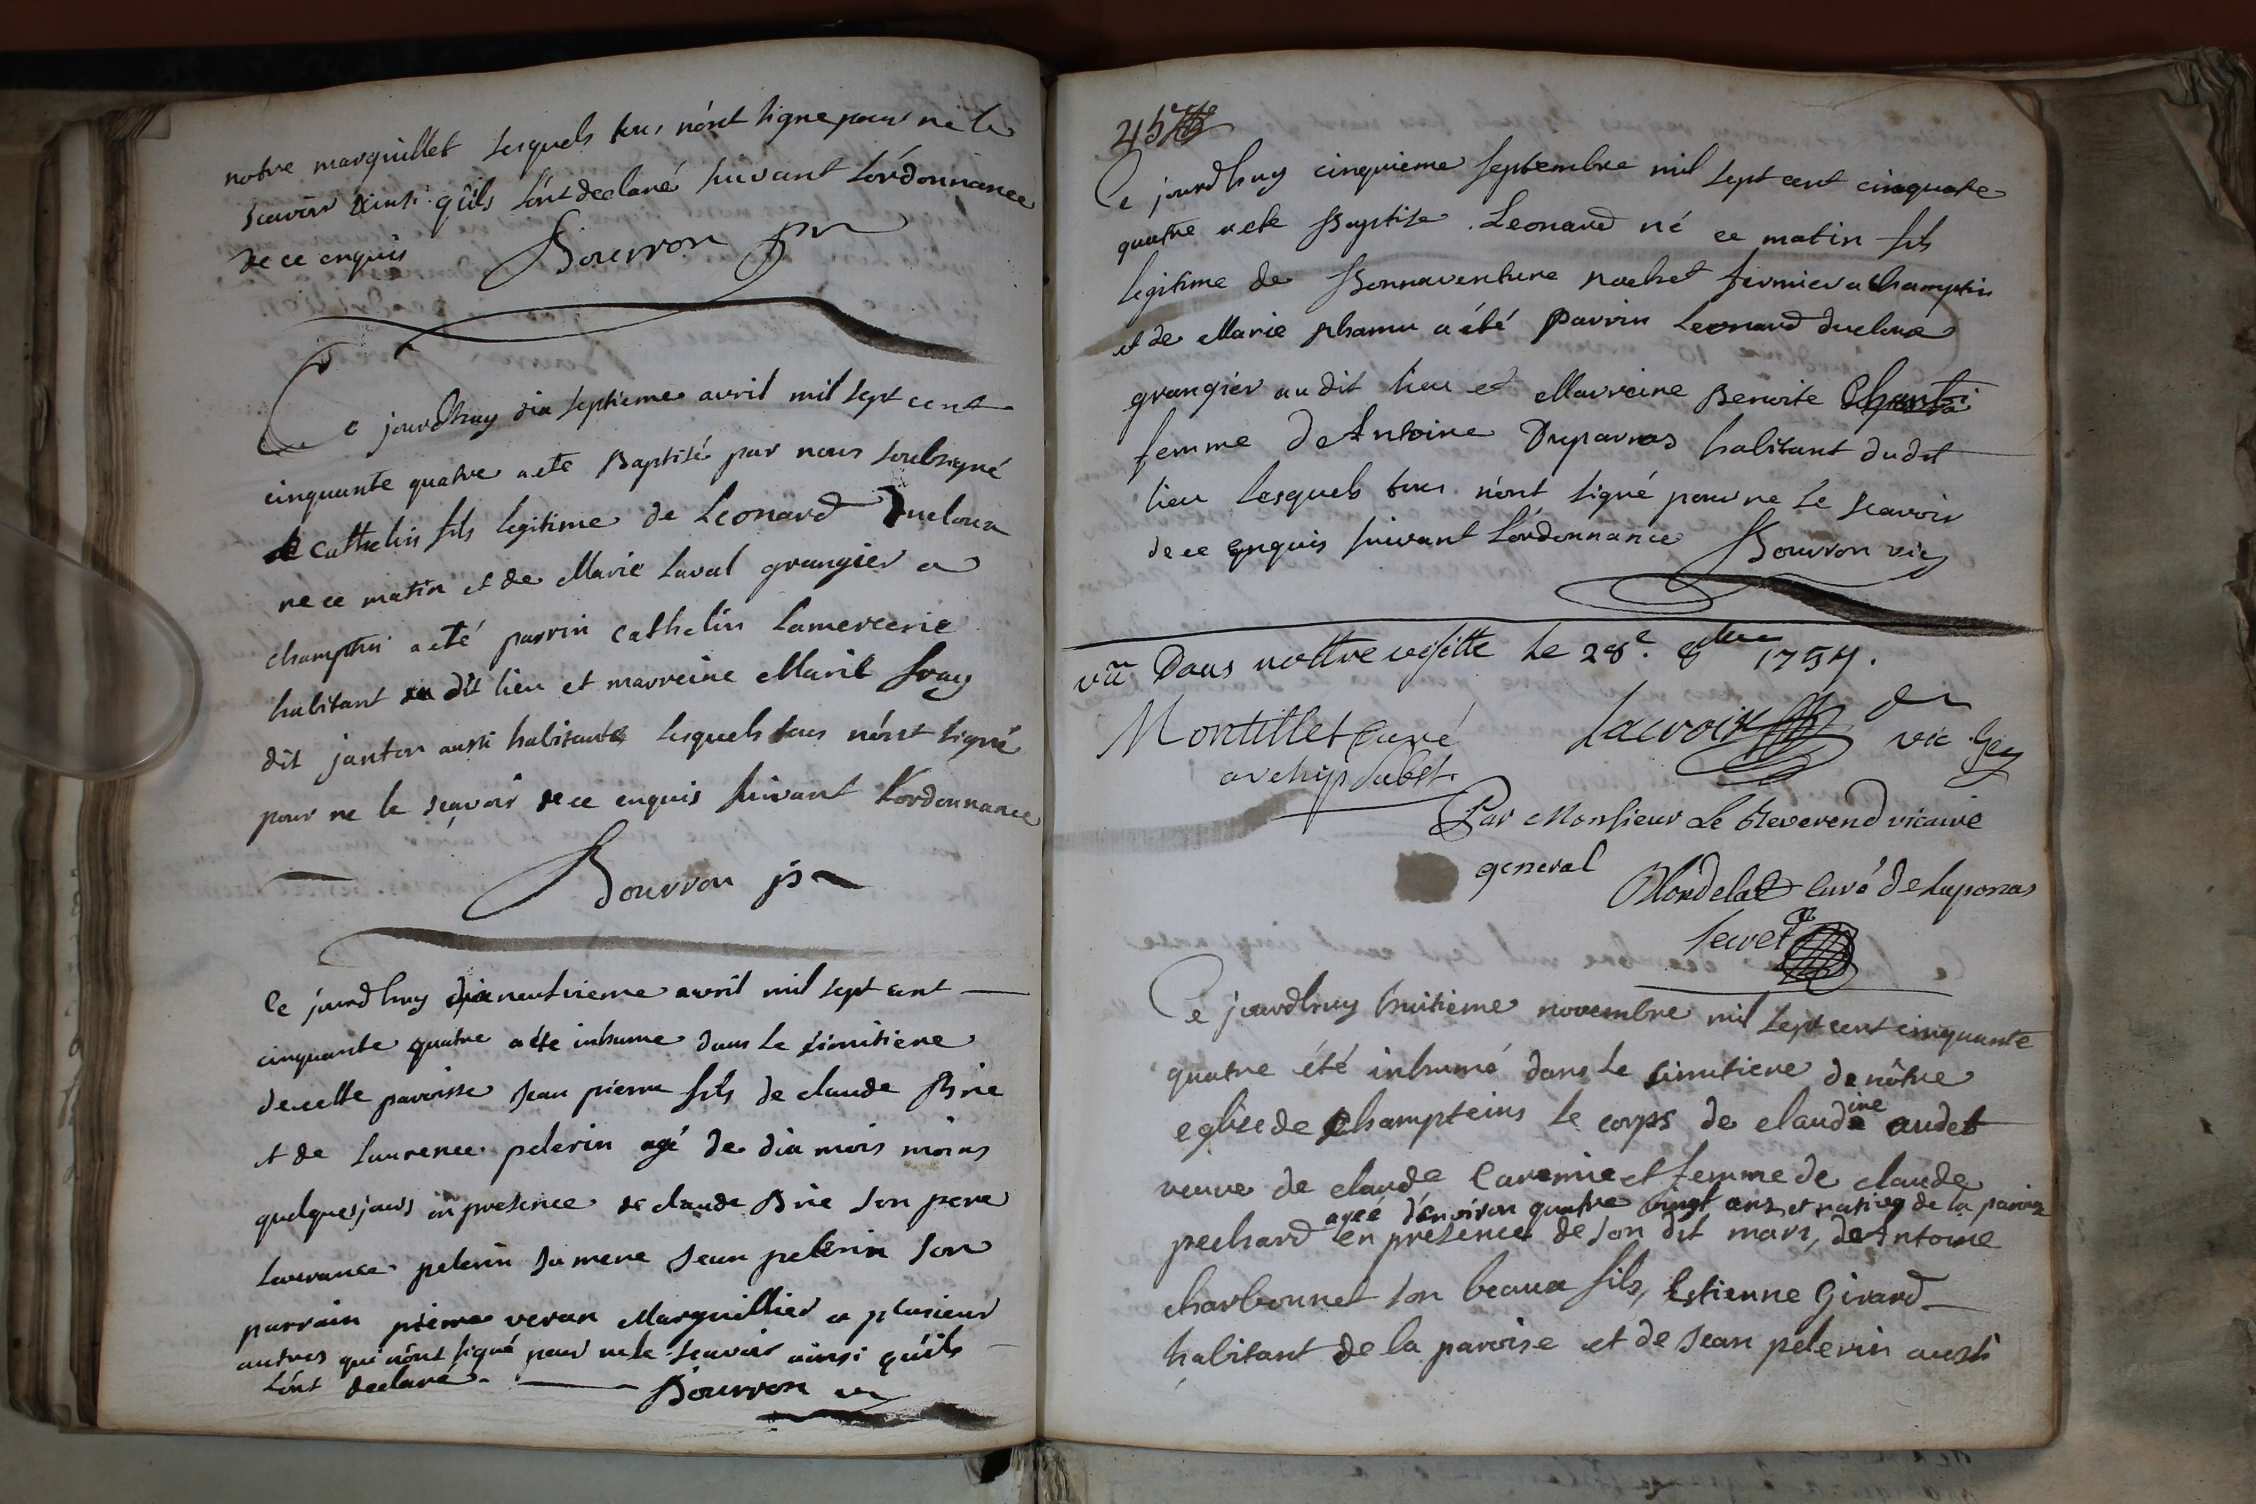 notre marguillet lesquels tous n'ont signe pour ne le
scavoir ainsi qu'ils l'ont declaré suivant l'ordonnance
de ce enquis Bourron
Ce jourdhuy dix septieme avril mil sept cent
cinquante quatre a ete Baptisé par nous soubsigné
cathelin fils legitime de Leonard Ducloux
ne ce matin et de Marie Laval grangier a
champtin a eté parrin cathelin Lamercerie
habitant du dit lieu et marreine Marie
dit janton aussi habitante lesquels tous n'ont signé
pour ne le sçavoir de ce enquis suivant l'ordonnance
Bourron
Ce jourdhuy dix neufvieme avril mil sept cent
cinquante quatre a ete inhume dans le simitiere
de cette paroisse Jean pierre fils de claude Brie
et de Laurence pelerin agé de dix mois moins
quelques jours en presence de claude Brie son pere
Laurance pelerin sa mere Jean pelerin son
parrain pierre veran Marguillier et plusieurs
autres qui n'ont signé pour ne le scavoir ainsi qu'ils
l'ont declaré Bourron
45
Ce jourdhuy cinquieme septembre mil sept cent cinquate
quatre a ete Baptise Leonard né ce matin fils
legitime de Bonnaventure fermier a Champtin
et de Marie a été Parrin Leonard ducloux
grangier au dit lieu et Marreine Benoite
femme de Antoine Duparras habitant dudit
lieu lesquels tous n'ont signé pour ne le scavoir
de ce enquis suivant l'ordonnance Bourron vic
vû Dans nottre visitte le 28e. 8bre 1754.
Montillet Curé Lacroix vic Gen
archip
Par Monsieur Le Reverend vicaire
general
Curé de Luponas
Secret
Ce jourdhuy huitieme novembre mil sept cent cinquante
quatre été inhumé dans le simitiere de nôtre
eglise de Champteins le corps de claudine audet
veuve de claude Caremie et femme de claude
agée d'environ quatre vingt ans et native de la paroisse
pechard en presence de son dit mari, de Antoine
charbonnet son beaux fils, Estienne Girard
habitant de la paroise et de Jean pelerin aussi